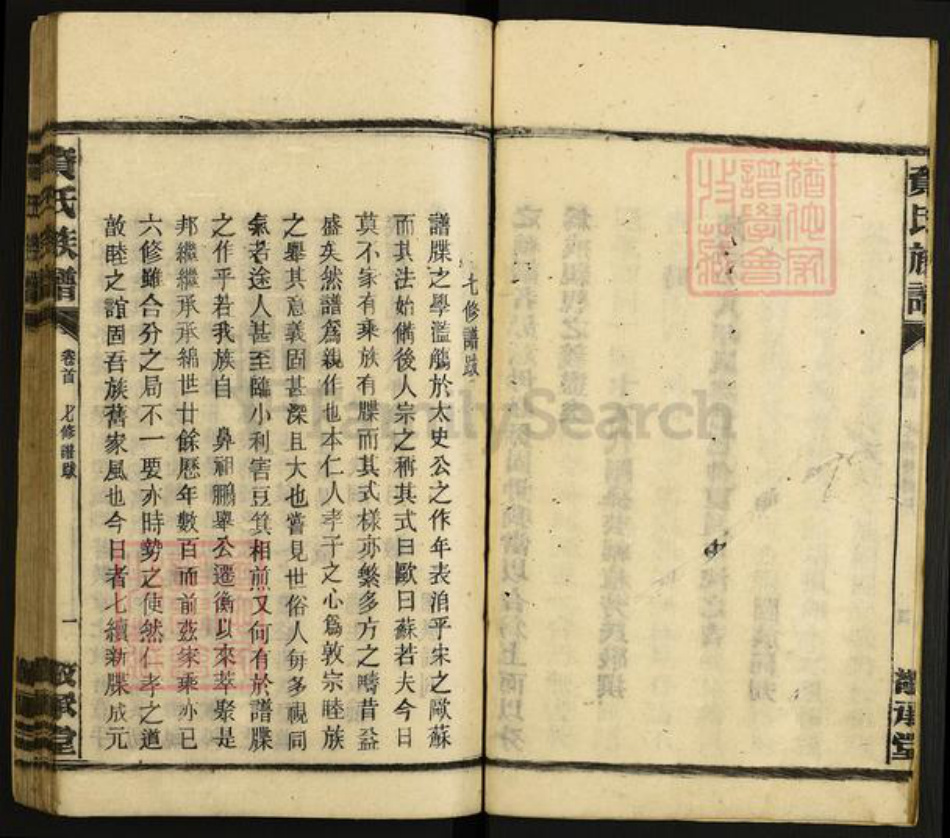 七修譜跋
譜牒之學濫觴於太史公之作年表洎乎宋之歐蘇
而其法始備後人宗之稱其式曰歐曰蘇若夫今日
莫不家有乘族有牒而其式樣亦繁多方之疇昔益
盛矣然譜爲親作也本仁人孝子之心爲敦宗睦族
之舉其意義固甚深且大也嘗見世俗人每多視同
氣若途人甚至臨小利害豆箕相煎又何有於譜牒
之作乎若我族自 鼻祖鵬舉公遷衡以來萃聚是
邦繼繼承承綿世廿餘歷年數百而前茲家乘亦已
六修雖合分之局不一要亦時勢之使然仁孝之道
敵睦之誼固吾族舊家風也今日者七續新牒成元
氏族譜
卷首
七修譜跋
一
承堂
氏族譜
承堂
FamilySearch
譜學會
收藏